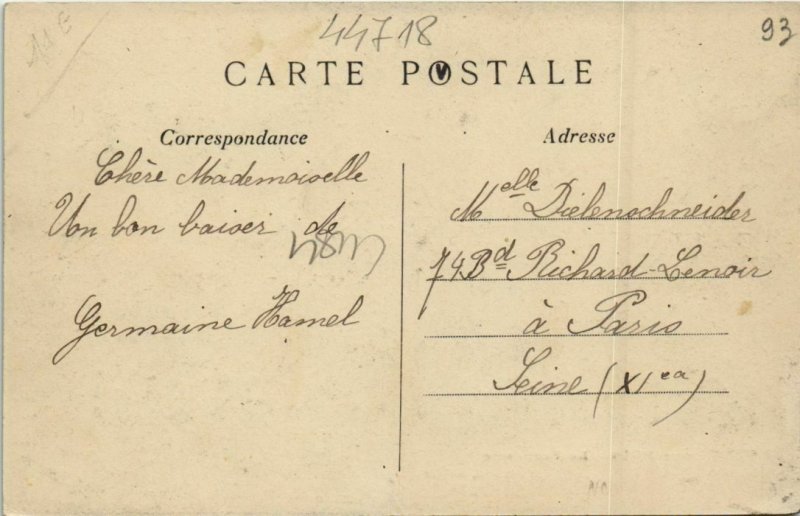 44718
93
11 €
CARTE POSTALE
Correspondance
Adresse
Chère Mademoiselle
Un bon baiser de
Germaine Hamel
Melle Dielenschneider
74 Bd Richard-Lenoir
à Paris
Seine (XI ea)